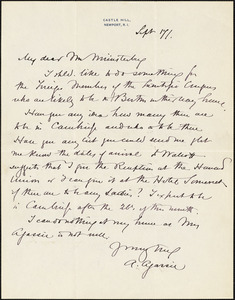 CASTLE HILL,
NEWPORT, R.I.
Sept 17/.
My dear Mr Münsterberg
I should like to do something for
the Foreign Members of the Scientific Congress
who are likely to be in Boston on their way home.
Have you any idea how many there are to
be in Cambridge and who is to be there
Have you any list you could get
me know the dates of arrival &
suggests that I give the Reception at the Harvard
Union or I can give it at the Hotel Somerset
if there are to be any Ladies? I expect to be
in Cambridge after the 26th of this month.
I can do nothing at my house as Mrs
Agassiz is not well.
Yours truly
A. Agassiz